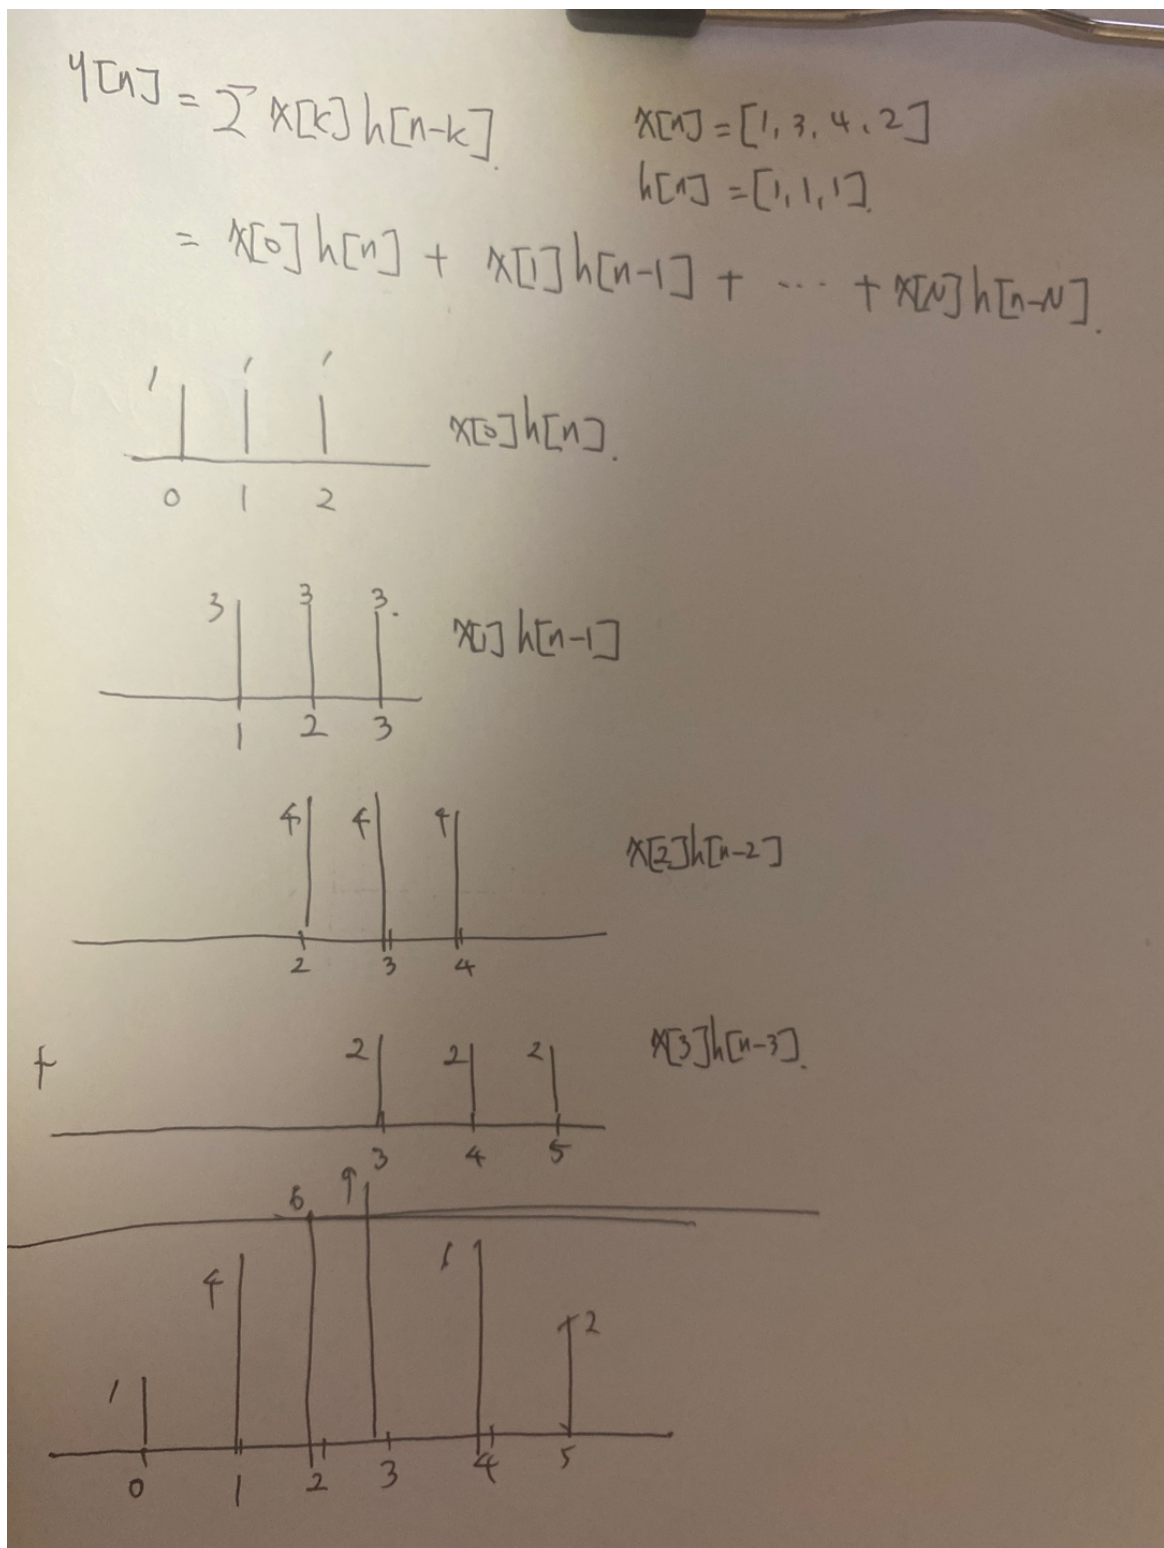 y[n] = Σ x[k] h[n-k].
x[n] = [1, 3, 4, 2]
h[n] = [1, 1, 1].
= x[0] h[n] + x[1] h[n-1] + ... + x[N] h[n-N].
1 1 1
x[0] h[n].
0 1 2
3 3 3.
x[1] h[n-1]
1 2 3
4 4 4
x[2] h[n-2]
2 3 4
+ 2 2 2
x[3] h[n-3].
3 4 5
9
4 2
1
0 1 2 3 4 5